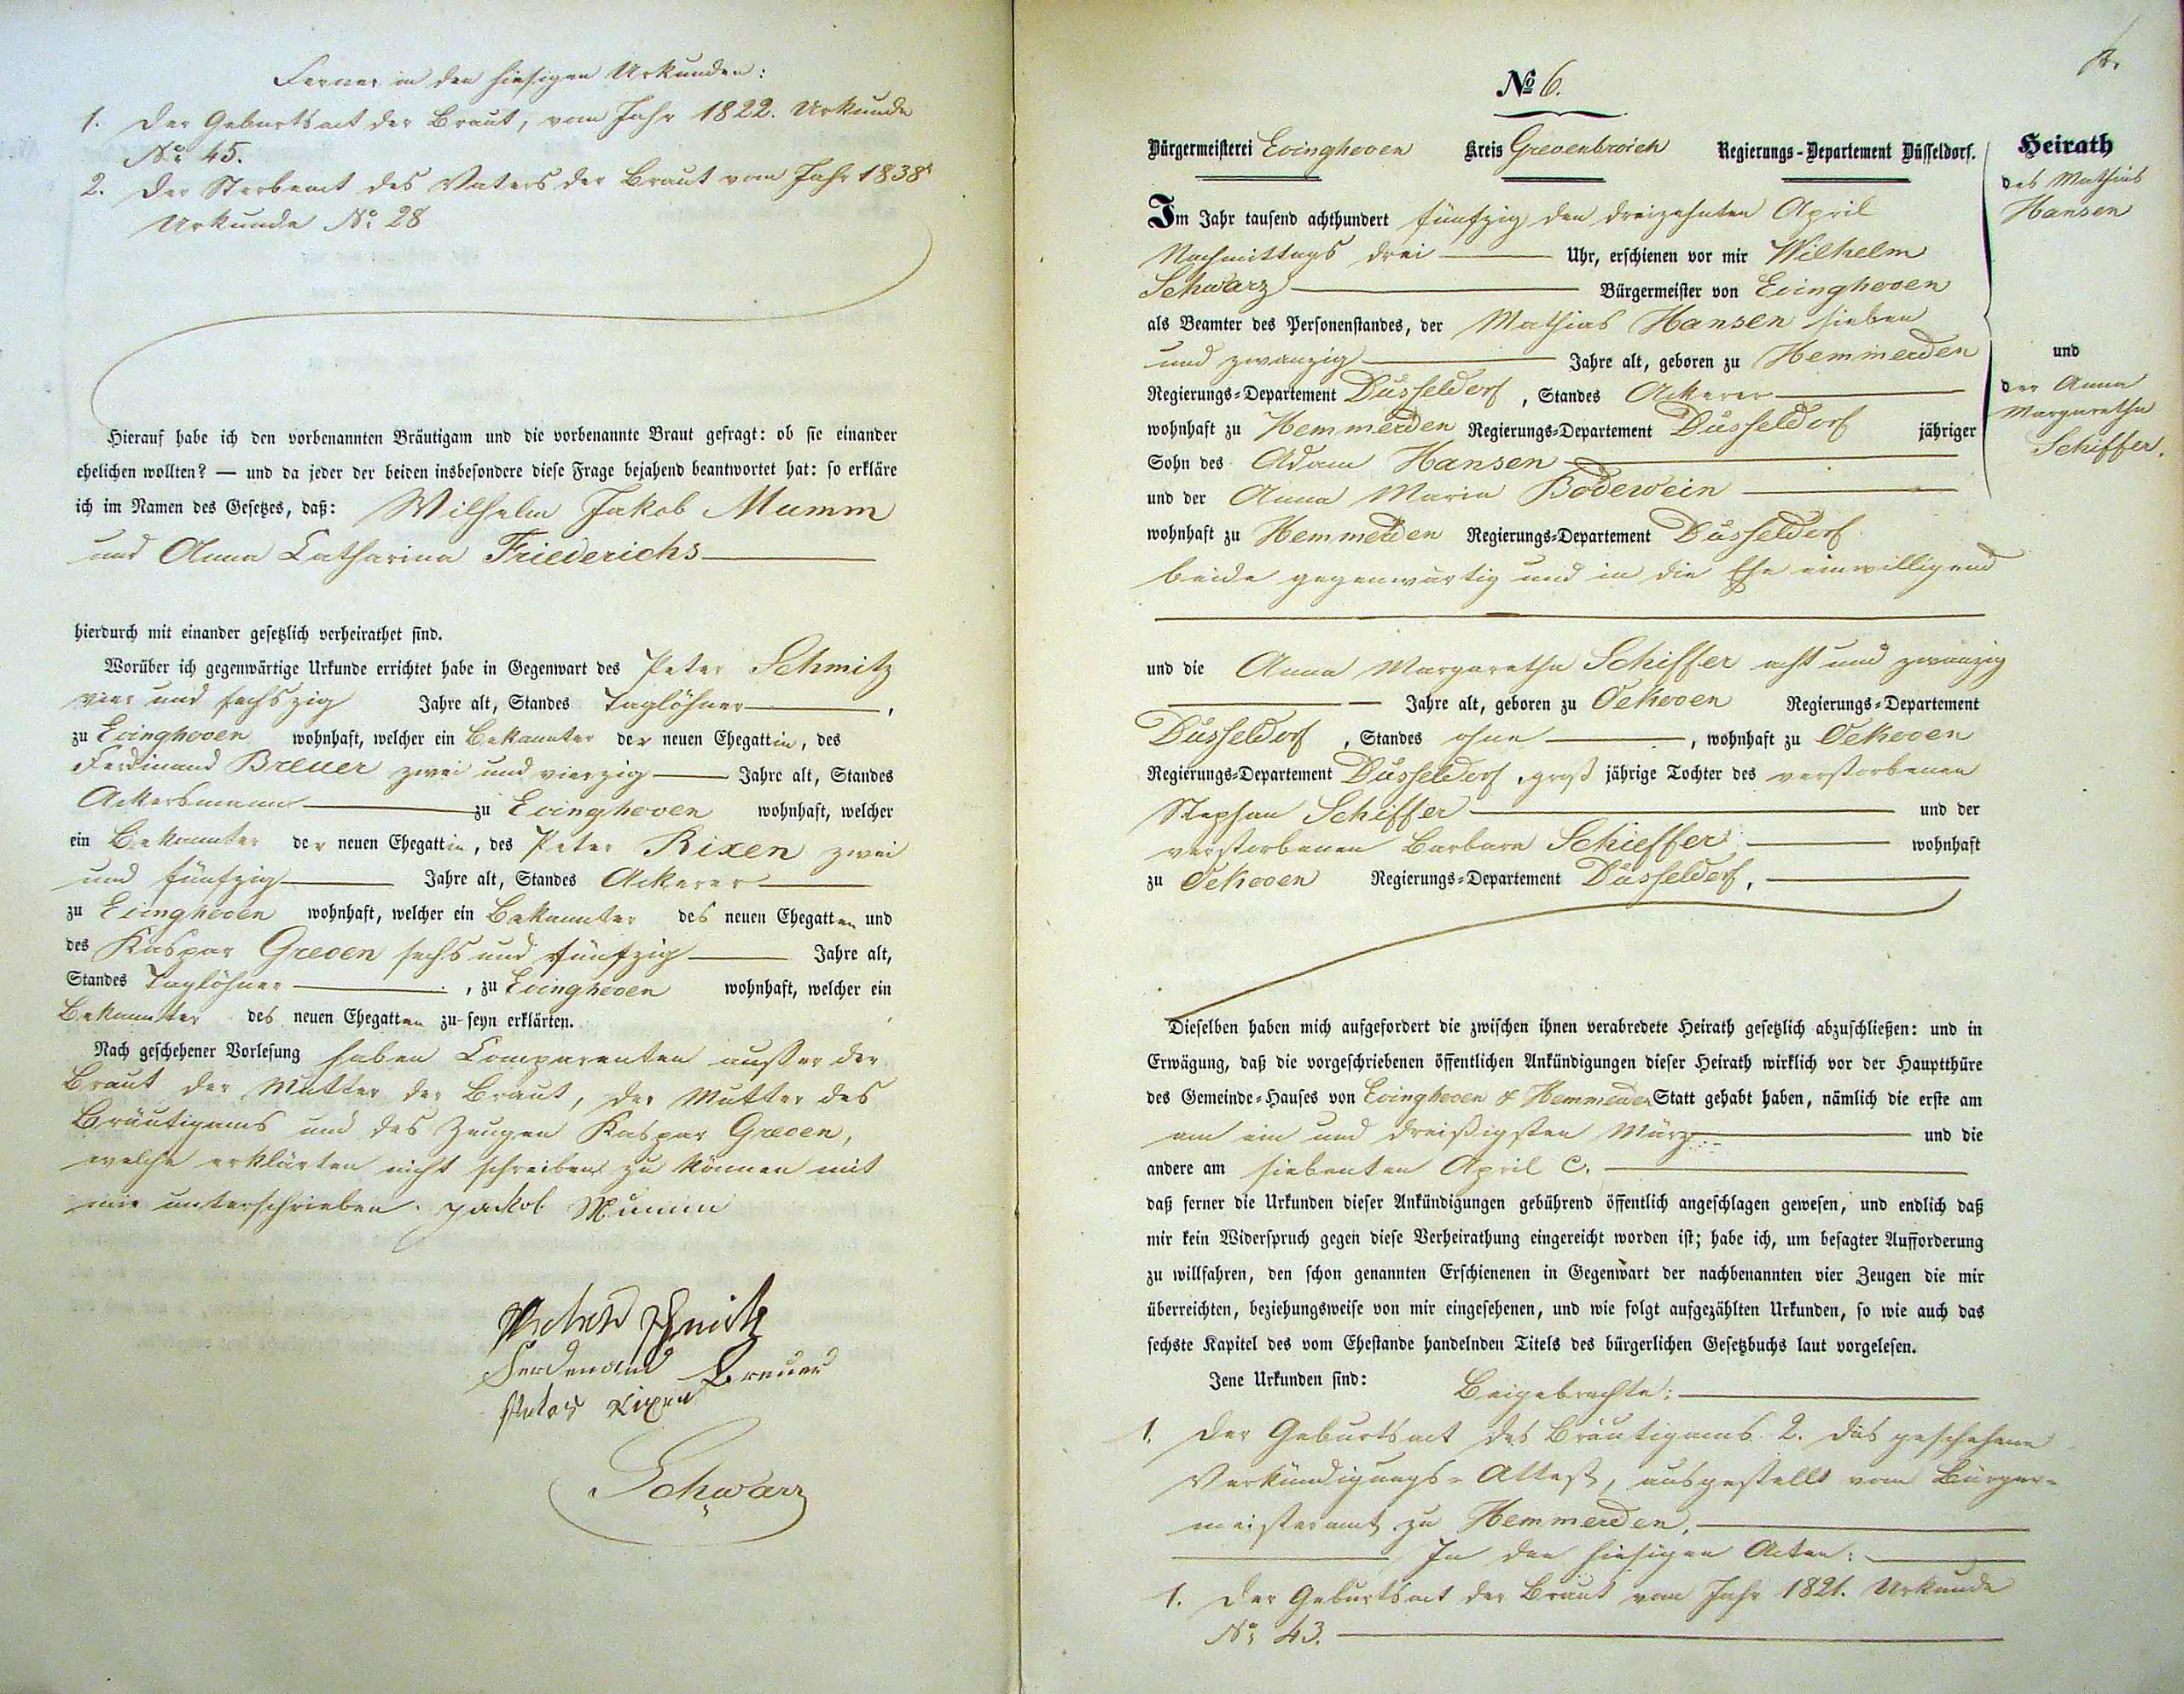 Ferner in den hiesigen Urkunden:
1. der Geburtsact der Braut, vom Jahr 1822. Urkunde
No: 45.
2. der Sterbeact des Vaters der Braut vom Jahr 1838
Urkunde No: 28
Hierauf habe ich den vorbenannten Bräutigam und die vorbenannte Braut gefragt: ob sie einander
ehelichen wollten? — und da jeder der beiden insbesondere diese Frage bejahend beantwortet hat: so erkläre
ich im Namen des Gesetzes, daß: Wilhelm Jakob Mumm
und Anna Catharina Friederichs
hierdurch mit einander gesetzlich verheirathet sind.
Worüber ich gegenwärtige Urkunde errichtet habe in Gegenwart des Peter Schmitz
vier und sechszig Jahre alt, Standes Taglöhner,
zu Evinghoven wohnhaft, welcher ein Bekannter der neuen Ehegattin, des
Ferdinand Breuer zwei und vierzig Jahre alt, Standes
Ackersmann zu Evinghoven wohnhaft, welcher
ein Bekannter der neuen Ehegattin, des Peter Rixen zwei
und fünfzig Jahre alt, Standes Ackerer
zu Evinghoven wohnhaft, welcher ein Bekannter des neuen Ehegatten und
des Kaspar Greven sechs und fünfzig Jahre alt,
Standes Taglöhner, zu Evinghoven wohnhaft, welcher ein
Bekannter des neuen Ehegatten zu seyn erklärten.
Nach geschehener Vorlesung haben Comparenten außer der
Braut der Mutter der Braut, der Mutter des
Bräutigams und des Zeugen Kaspar Greven,
welche erklärten nicht schreiben zu können mit
mir unterschrieben. Jackob Mumm
Peter Schmitz
Ferdenand Breuer
Peter Rixen
Schwarz
№ 6.
Bürgermeisterei Evinghoven Kreis Grevenbroich Regierungs-Departement Düsseldorf.
Heirath
des Mathias
Hansen
und
der Anna
Margaretha
Schiffer.
Im Jahr tausend achthundert fünfzig den dreizehnten April
Nachmittags drei Uhr, erschienen vor mir Wilhelm
Schwarz Bürgermeister von Evinghoven
als Beamter des Personenstandes, der Mathias Hansen sieben
und zwanzig Jahre alt, geboren zu Hemmerden
Regierungs-Departement Düsseldorf, Standes Ackerer
wohnhaft zu Hemmerden Regierungs-Departement Düsseldorf jähriger
Sohn des Adam Hansen
und der Anna Maria Bodewein
wohnhaft zu Hemmerden Regierungs-Departement Düsseldorf
beide gegenwärtig und in die Ehe einwilligend
und die Anna Margaretha Schiffer acht und zwanzig
Jahre alt, geboren zu Oekoven Regierungs-Departement
Düsseldorf, Standes ohne, wohnhaft zu Oekoven
Regierungs-Departement Düsseldorf, groß jährige Tochter des verstorbenen
Stephan Schiffer und der
verstorbenen Barbara Schieffer wohnhaft
zu Oekoven Regierungs-Departement Düsseldorf.
Dieselben haben mich aufgefordert die zwischen ihnen verabredete Heirath gesetzlich abzuschließen: und in
Erwägung, daß die vorgeschriebenen öffentlichen Ankündigungen dieser Heirath wirklich vor der Hauptthüre
des Gemeinde-Hauses von Evinghoven & Hemmerden Statt gehabt haben, nämlich die erste am
am ein und dreißigsten März und die
andere am siebenten April c.
daß ferner die Urkunden dieser Ankündigungen gebührend öffentlich angeschlagen gewesen, und endlich daß
mir kein Widerspruch gegen diese Verheirathung eingereicht worden ist; habe ich, um besagter Aufforderung
zu willfahren, den schon genannten Erschienenen in Gegenwart der nachbenannten vier Zeugen die mir
überreichten, beziehungsweise von mir eingesehenen, und wie folgt aufgezählten Urkunden, so wie auch das
sechste Kapitel des vom Ehestande handelnden Titels des bürgerlichen Gesetzbuchs laut vorgelesen.
Jene Urkunden sind: Beigebrachte:
1. der Geburtsact des Bräutigams 2. das geschehene
Verkündigungs-Attest, ausgestellt vom Bürger-
meisteramt zu Hemmerden.
In den hiesigen Acten:
1. der Geburtsact der Braut vom Jahr 1821. Urkunde
No: 43.